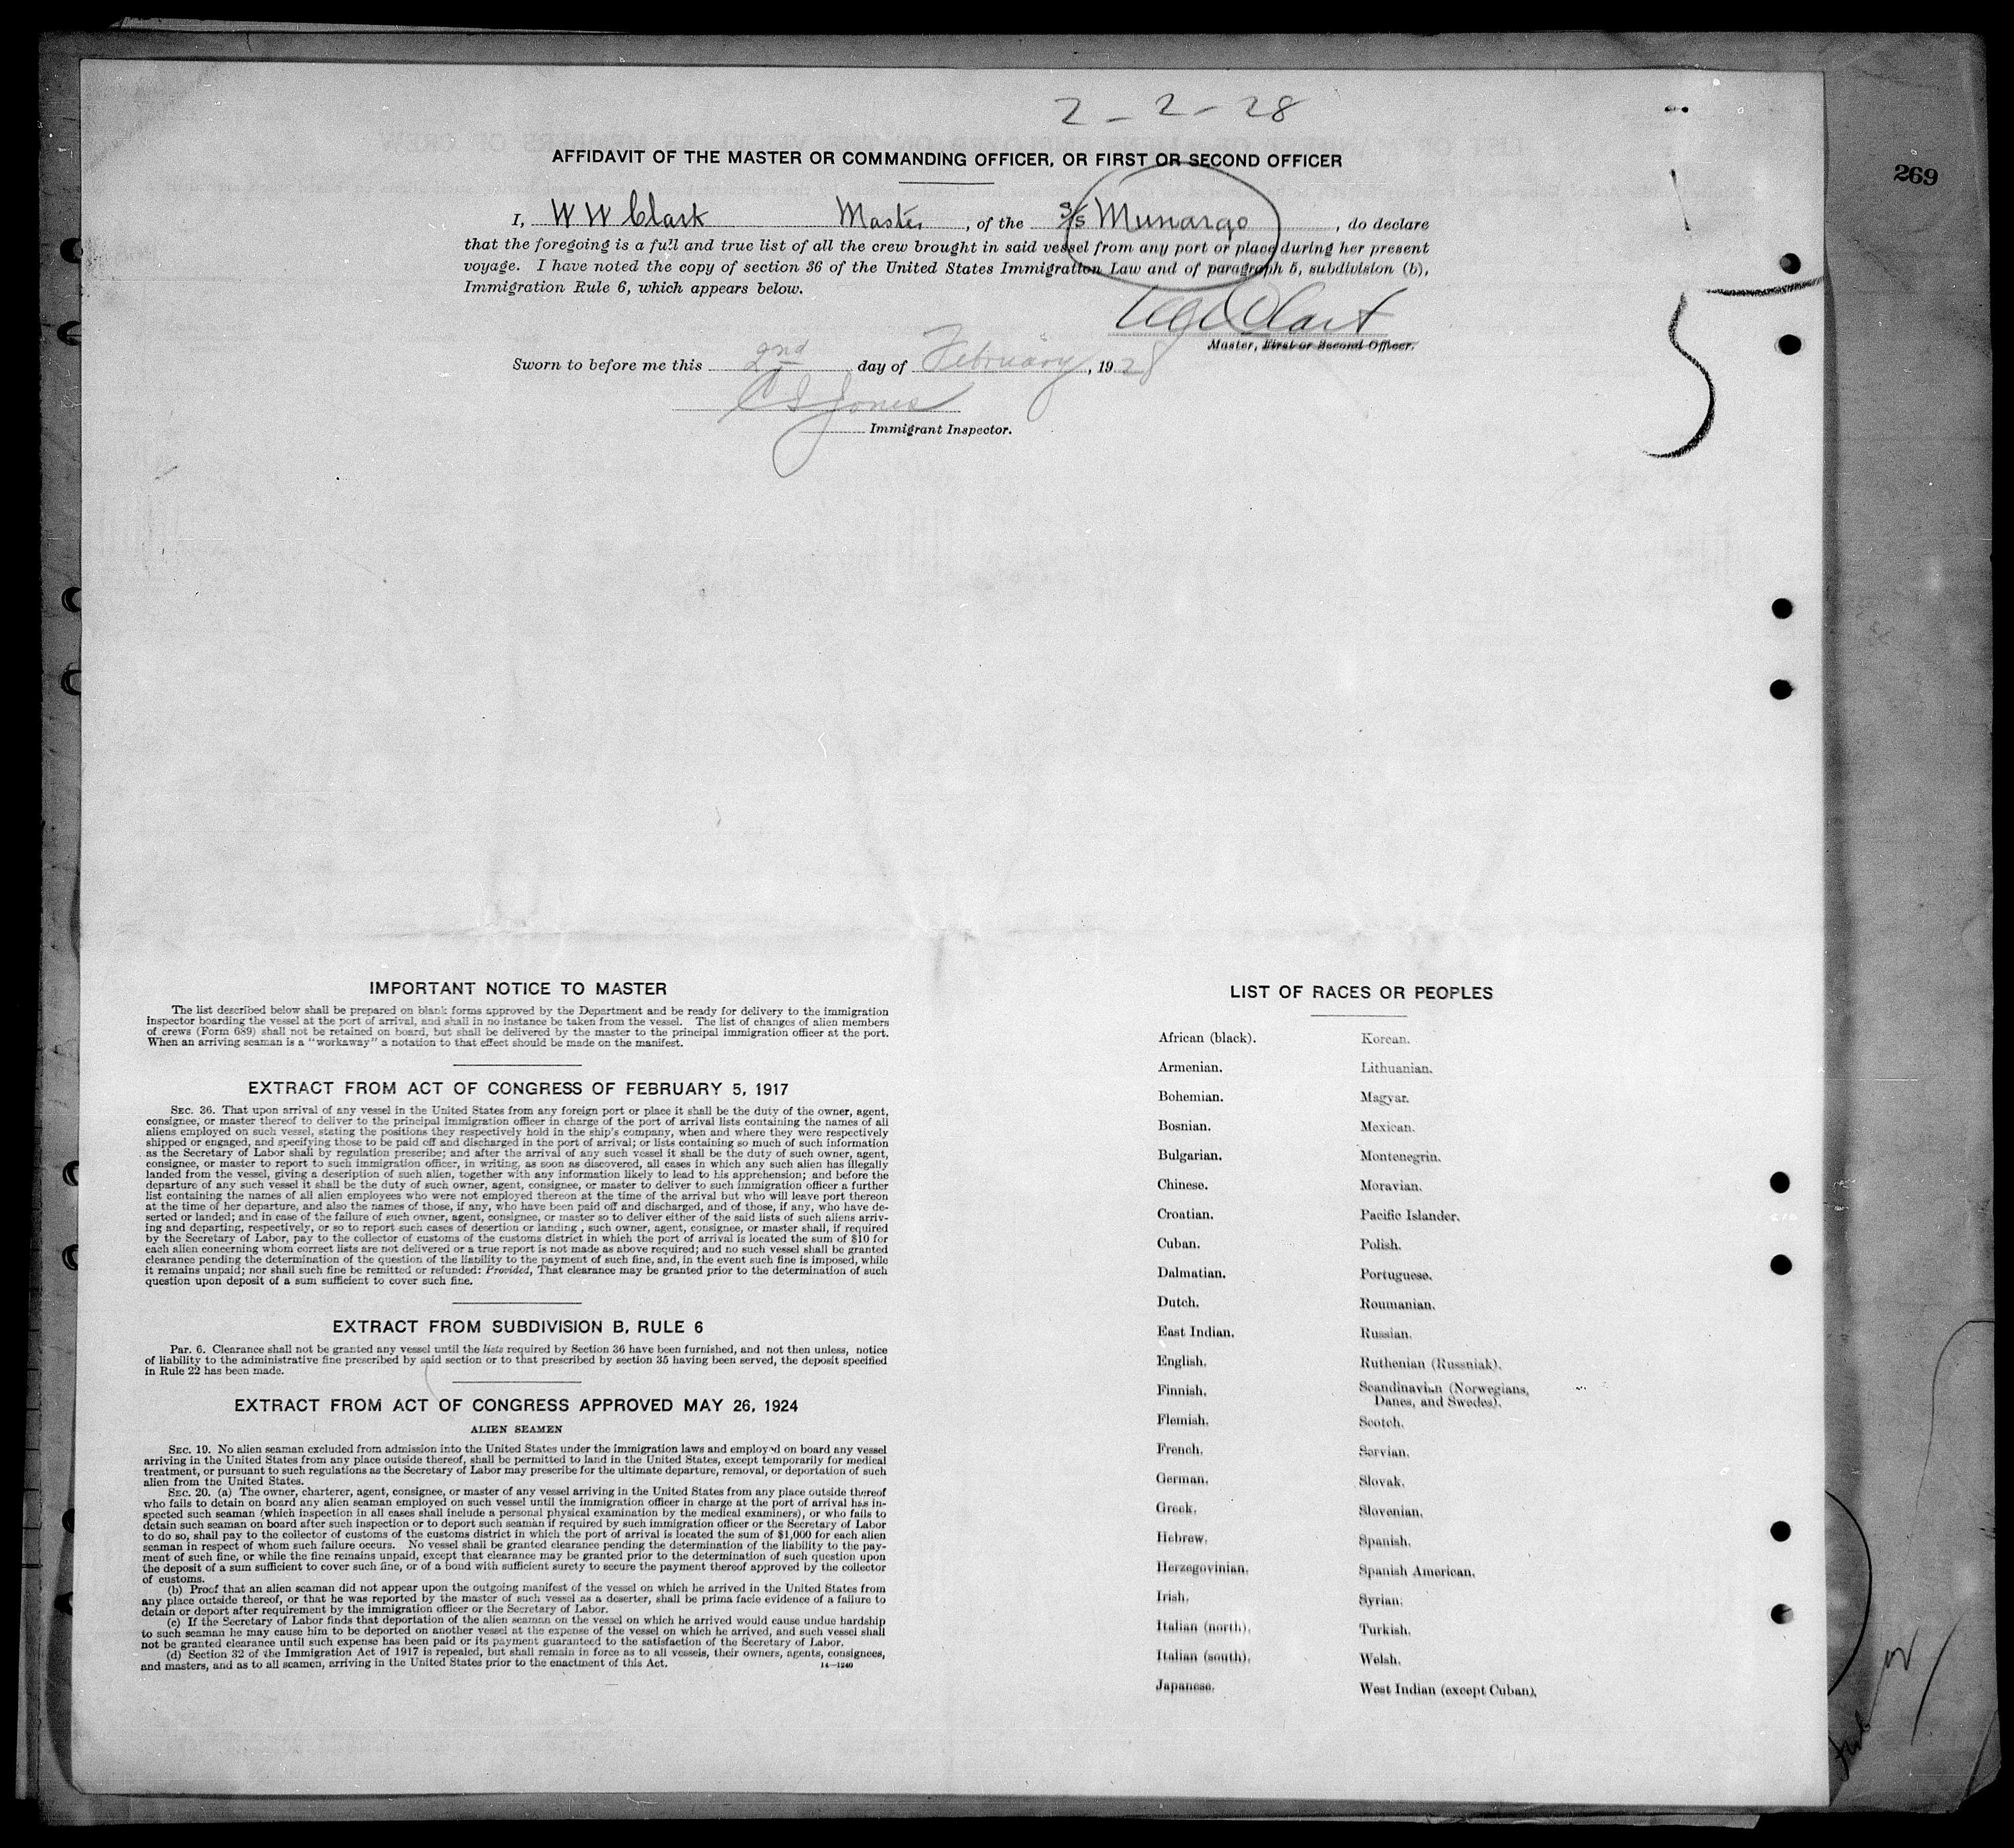 2 - 2 - 28
269
AFFIDAVIT OF THE MASTER OR COMMANDING OFFICER, OR FIRST OR SECOND OFFICER
I, W W Clark Master, of the S/S Munargo, do declare
that the foregoing is a full and true list of all the crew brought in said vessel from any port or place during her present
voyage. I have noted the copy of section 36 of the United States Immigration Law and of paragraph 5, subdivision (b),
Immigration Rule 6, which appears below.
W W Clark
Master, First or Second Officer.
5
Sworn to before me this 2nd day of February, 1928
Jones
Immigrant Inspector.
IMPORTANT NOTICE TO MASTER
The list described below shall be prepared on blank forms approved by the Department and be ready for delivery to the immigration
inspector boarding the vessel at the port of arrival, and shall in no instance be taken from the vessel. The list of changes of alien members
of crews (Form 689) shall not be retained on board, but shall be delivered by the master to the principal immigration officer at the port.
When an arriving seaman is a "workaway" a notation to that effect should be made on the manifest.
EXTRACT FROM ACT OF CONGRESS OF FEBRUARY 5, 1917
SEC. 36. That upon arrival of any vessel in the United States from any foreign port or place it shall be the duty of the owner, agent,
consignee, or master thereof to deliver to the principal immigration officer in charge of the port of arrival lists containing the names of all
aliens employed on such vessel, stating the positions they respectively hold in the ship's company, when and where they were respectively
shipped or engaged, and specifying those to be paid off and discharged in the port of arrival; or lists containing so much of such information
as the Secretary of Labor shall by regulation prescribe; and after the arrival of any such vessel it shall be the duty of such owner, agent,
consignee, or master to report to such immigration officer, in writing, as soon as discovered, all cases in which any such alien has illegally
landed from the vessel, giving a description of such alien, together with any information likely to lead to his apprehension; and before the
departure of any such vessel it shall be the duty of such owner, agent, consignee, or master to deliver to such immigration officer a further
list containing the names of all alien employees who were not employed thereon at the time of the arrival but who will leave port thereon
at the time of her departure, and also the names of those, if any, who have been paid off and discharged, and of those, if any, who have de-
serted or landed; and in case of the failure of such owner, agent, consignee, or master so to deliver either of the said lists of such aliens arriv-
ing and departing, respectively, or so to report such cases of desertion or landing , such owner, agent, consignee, or master shall, if required
by the Secretary of Labor, pay to the collector of customs of the customs district in which the port of arrival is located the sum of $10 for
each alien concerning whom correct lists are not delivered or a true report is not made as above required; and no such vessel shall be granted
clearance pending the determination of the question of the liability to the payment of such fine, and, in the event such fine is imposed, while
it remains unpaid; nor shall such fine be remitted or refunded: Provided, That clearance may be granted prior to the determination of such
question upon deposit of a sum sufficient to cover such fine.
EXTRACT FROM SUBDIVISION B, RULE 6
Par. 6. Clearance shall not be granted any vessel until the lists required by Section 36 have been furnished, and not then unless, notice
of liability to the administrative fine prescribed by said section or to that prescribed by section 35 having been served, the deposit specified
in Rule 22 has been made.
EXTRACT FROM ACT OF CONGRESS APPROVED MAY 26, 1924
ALIEN SEAMEN
SEC. 19. No alien seaman excluded from admission into the United States under the immigration laws and employed on board any vessel
arriving in the United States from any place outside thereof, shall be permitted to land in the United States, except temporarily for medical
treatment, or pursuant to such regulations as the Secretary of Labor may prescribe for the ultimate departure, removal, or deportation of such
alien from the United States.
SEC. 20. (a) The owner, charterer, agent, consignee, or master of any vessel arriving in the United States from any place outside thereof
who fails to detain on board any alien seaman employed on such vessel until the immigration officer in charge at the port of arrival has in-
spected such seaman (which inspection in all cases shall include a personal physical examination by the medical examiners), or who fails to
detain such seaman on board after such inspection or to deport such seaman if required by such immigration officer or the Secretary of Labor
to do so, shall pay to the collector of customs of the customs district in which the port of arrival is located the sum of $1,000 for each alien
seaman in respect of whom such failure occurs. No vessel shall be granted clearance pending the determination of the liability to the pay-
ment of such fine, or while the fine remains unpaid, except that clearance may be granted prior to the determination of such question upon
the deposit of a sum sufficient to cover such fine, or of a bond with sufficient surety to secure the payment thereof approved by the collector
of customs.
(b) Proof that an alien seaman did not appear upon the outgoing manifest of the vessel on which he arrived in the United States from
any place outside thereof, or that he was reported by the master of such vessel as a deserter, shall be prima facie evidence of a failure to
detain or deport after requirement by the immigration officer or the Secretary of Labor.
(c) If the Secretary of Labor finds that deportation of the alien seaman on the vessel on which he arrived would cause undue hardship
to such seaman he may cause him to be deported on another vessel at the expense of the vessel on which he arrived, and such vessel shall
not be granted clearance until such expense has been paid or its payment guaranteed to the satisfaction of the Secretary of Labor.
(d) Section 32 of the Immigration Act of 1917 is repealed, but shall remain in force as to all vessels, their owners, agents, consignees,
and masters, and as to all seamen, arriving in the United States prior to the enactment of this Act.
14—1240
LIST OF RACES OR PEOPLES
African (black).
Armenian.
Bohemian.
Bosnian.
Bulgarian.
Chinese.
Croatian.
Cuban.
Dalmatian.
Dutch.
East Indian.
English.
Finnish.
Flemish.
French.
German.
Greek.
Hebrew.
Herzegovinian.
Irish.
Italian (north).
Italian (south).
Japanese.
Korean.
Lithuanian.
Magyar.
Mexican.
Montenegrin.
Moravian.
Pacific Islander.
Polish.
Portuguese.
Roumanian.
Russian.
Ruthenian (Russniak).
Scandinavian (Norwegians,
Danes, and Swedes).
Scotch.
Servian.
Slovak.
Slovenian.
Spanish.
Spanish American.
Syrian.
Turkish.
Welsh.
West Indian (except Cuban).